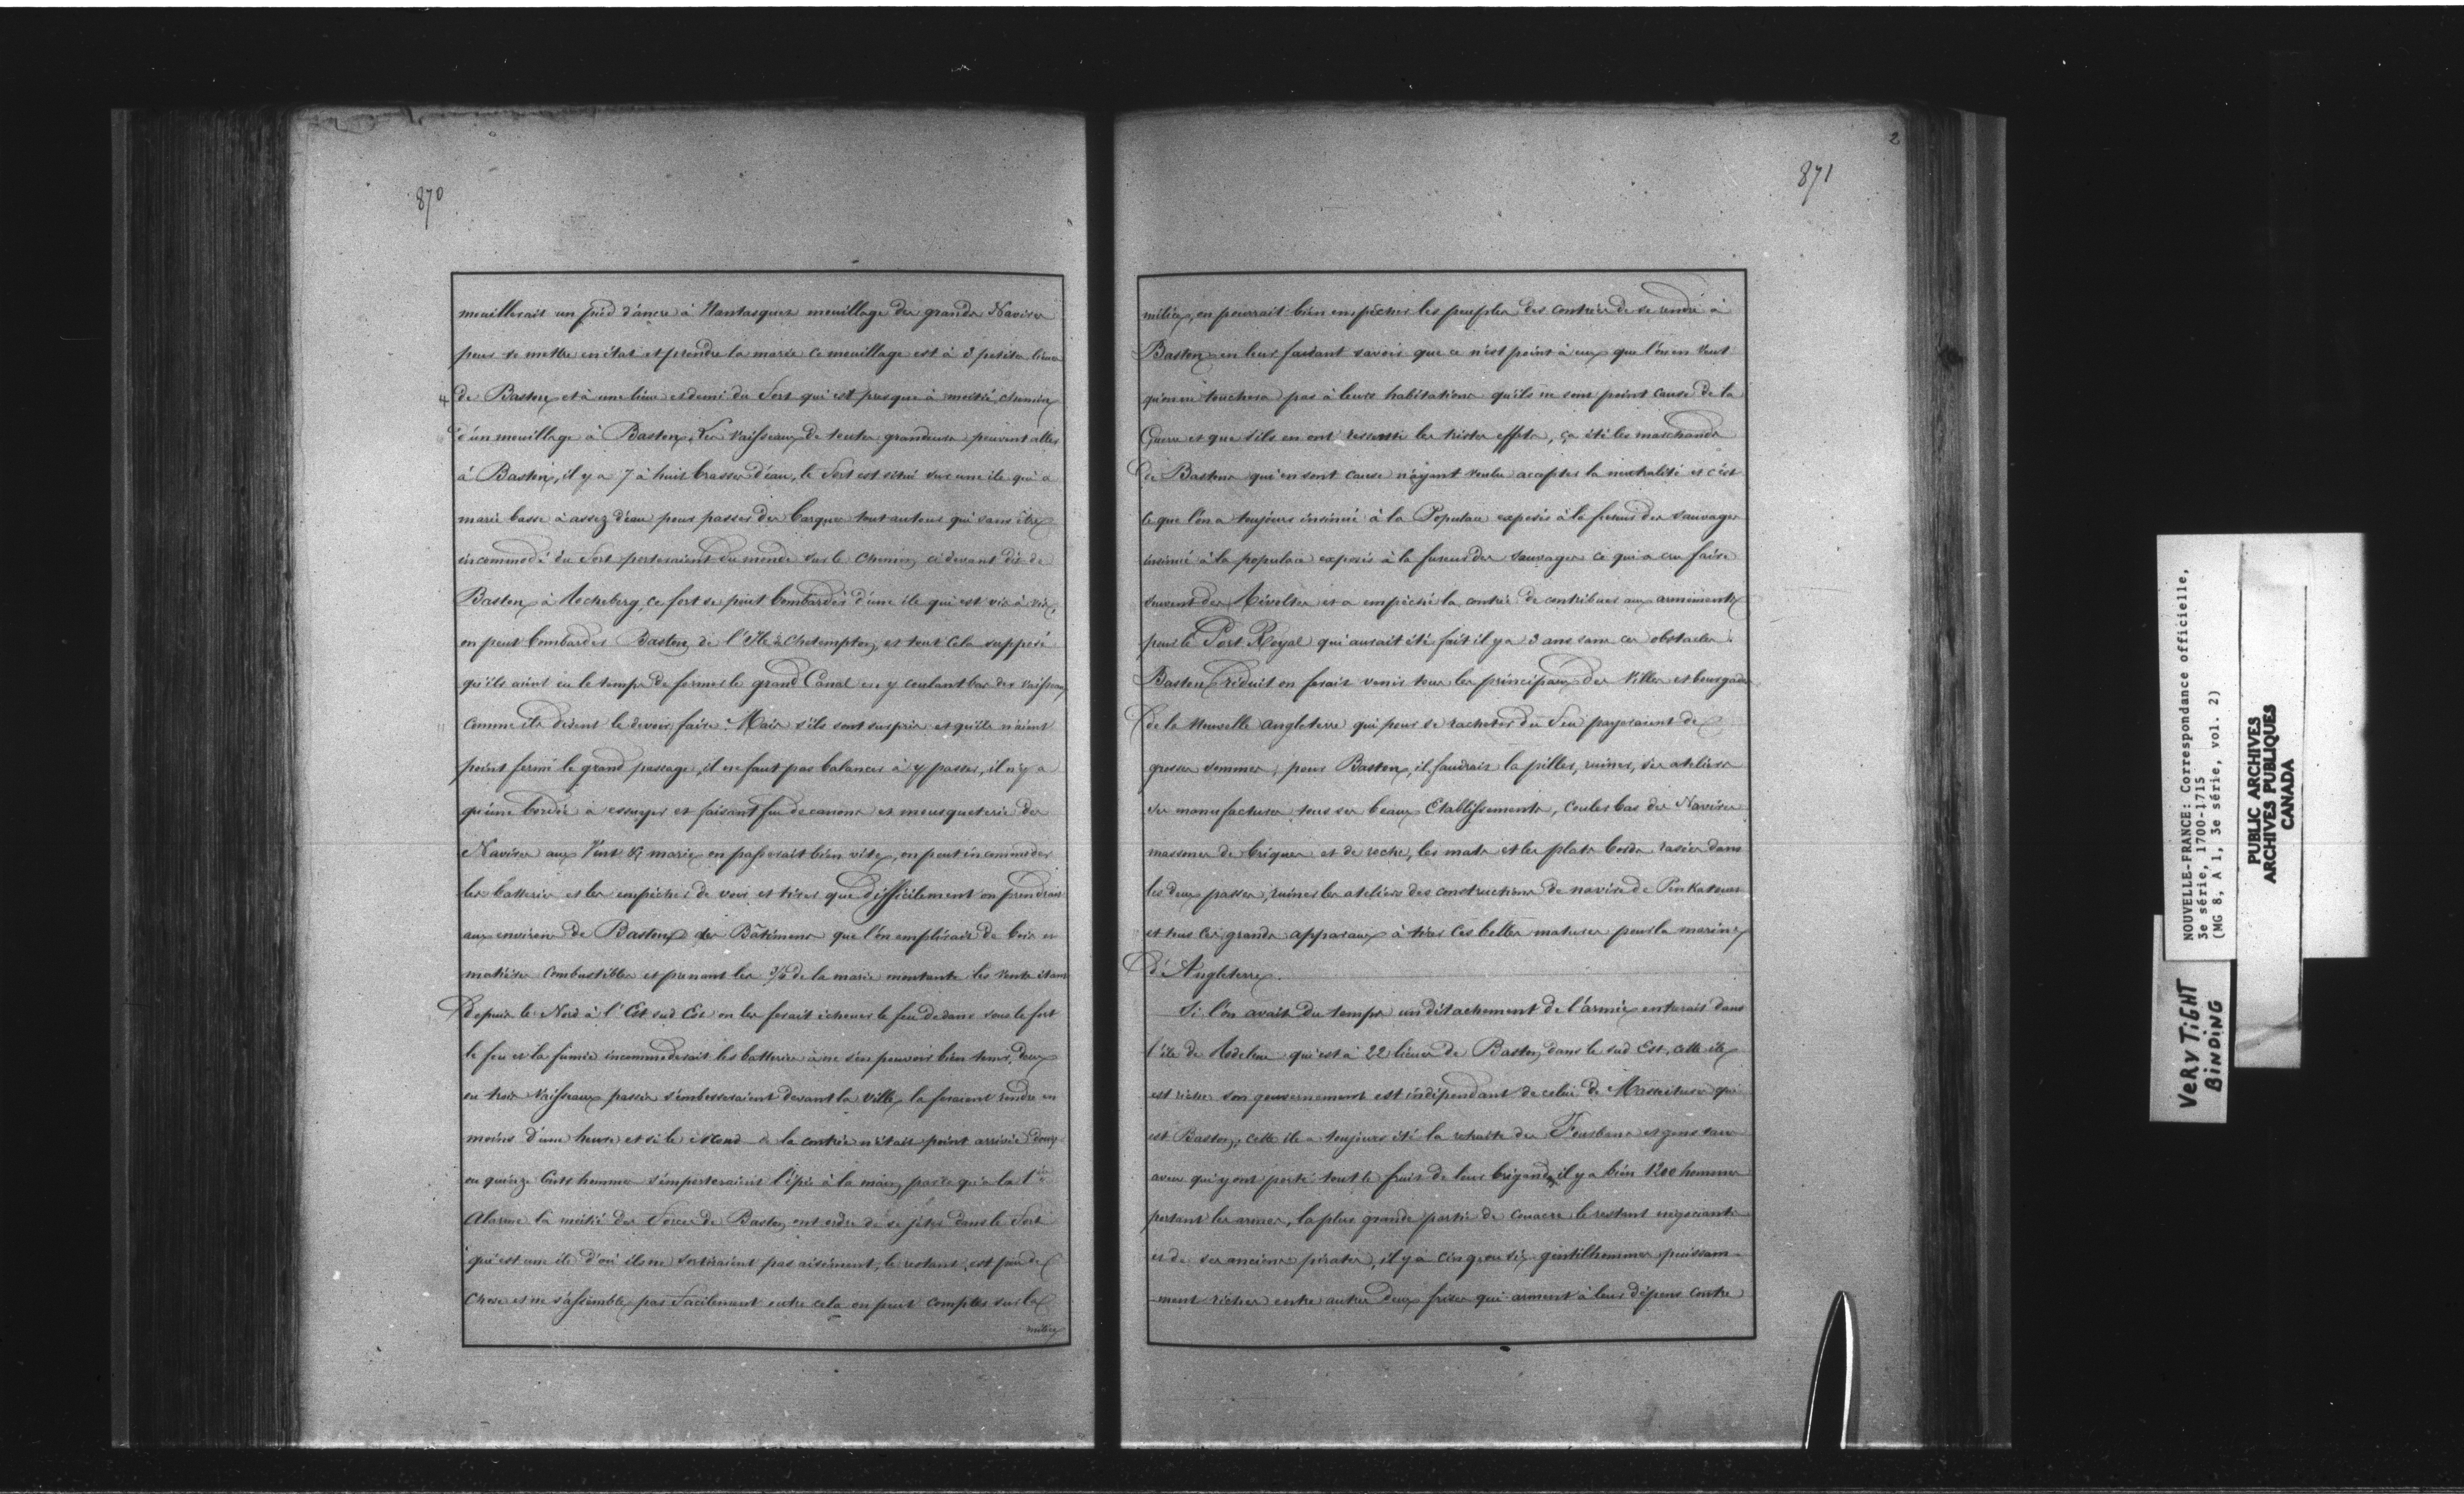 870
mouillerait un pied d'ancre à Nantasques mouillage des grands Navires
pour se mettre en état et prendre la marée ce mouillage est à 3 petites lieues
de Baston et à une lieue et demi du Fort qui est presque à moitié chemin
d'un mouillage à Baston, Les Vaisseaux de toutes grandeurs peuvent aller
à Baston, il y a 7 à huit brasses d'eau, le Fort est situé sur une ile qui a
marée basse à assez d'eau pour passer des barques tout autour qui sans être
incommodé du Fort porteraient du monde sur le chemin ci devant dit de
Baston à Rocheberg, ce fort se peut bombarder d'une ile qui est vis à vis,
on peut bombarder Baston de l'Ile à Chotempton, et tout cela supposé
qu'ils aient eu le temps de fermer le grand Canal en y coulant bas des vaisseaux
comme ils disent le devoir faire. Mais s'ils sont surpris et qu'ils n'aient
point fermé le grand passage, il ne faut pas balancer à y passer, il n'y a
qu'une bordée à essuyer et faisant feu de canons et mousqueterie des
Navires aux Vent & marée on passerait bien vite, on peut incommoder
les batteries et les empêcher de voir et tirer que difficilement on prendrait
aux environs de Baston des Bâtimens que l'on emplirait de bois et
matières combustibles et prenant les 3/4 de la marée montante les vents étant
Depuis le Nord à l'Est sud Est on les ferait échouer le feu dedans sous le fort
le feu et la fumée incommoderait les batteries à ne s'en pouvoir bien tenir, deux
ou trois Vaisseaux passés s'embosseraient devant la Ville, la feraient rendre en
moins d'une heure et si le second de la contrée n'était point arrivée douze
ou quinze Cents hommes l'emporteraient l'épée à la main parce qu'à la 1ère
Alarme la moitié des Forces de Baston ont ordre de se jeter dans le Fort
qui est une ile d'où ils ne sortiraient pas aisément, le restant est peu de
Chose et ne s'assemble pas Facilement outre cela on peut compter sur la
milice
2
871
milice, on pourrait bien empêcher les peuples des contrées de se rendre à
Baston en leur faisant savoir que ce n'est point à eux que l'on en veut
qu'on ne touchera pas à leurs habitations qu'ils ne sont point cause de la
Guerre et que s'ils en ont ressenti les tristes effets, ça été les marchands
de Baston qui en sont cause n'ayant voulu accepter la neutralité et c'est
ce que l'on a toujours insinué à la Populace exposés à la fureur des sauvages
insinué à la populace exposés à la fureur des sauvages ce qui a cru faire
souvent des Révoltes et a empêché la contrée de contribuer aux armements
pour le Port Royal qui aurait été fait il y a 3 ans sans ces obstacles.
Baston réduit on ferait venir tous les principaux des Villes et bourgades
de la Nouvelle Angleterre qui pour se racheter du Feu payeraient de
grosses sommes, pour Baston, il faudrait la piller, ruiner, ses ateliers
ses manufactures tous ses beaux Etablissements, couler bas des Navires
massonés de briques et de roche, les mats et les plats bords rasées dans
les deux passes, ruiner les ateliers des constructions de navire de
et tous ces grands apparaux à tirer ces belles matures pour la marine
d'Angleterre.
Si l'on avait du temps un détachement de l'armée entrerait dans
l'ile de Rodeline qui est à 22 lieues de Baston dans le sud Est, cette ile
est riche son gouvernement est indépendant de celui de qui
est Baston, cette ile a toujours été la retraite des Forbans et gens sans
aveu qui y ont porté tout le fruit de leur brigande, il y a bien 1200 hommes
portant les armes, la plus grande partie de Couacre le restant négociants
et de ses anciens pirates, il y a cinq ou six gentilhommes puissam-
-ment riches entre autres deux frères qui arment à leurs dépens contre
NOUVELLE-FRANCE: Correspondance officielle,
3e série, 1700-1715
(MG 8, A 1, 3e série, vol. 2)
PUBLIC ARCHIVES
ARCHIVES PUBLIQUES
CANADA
VERY TIGHT
BINDING